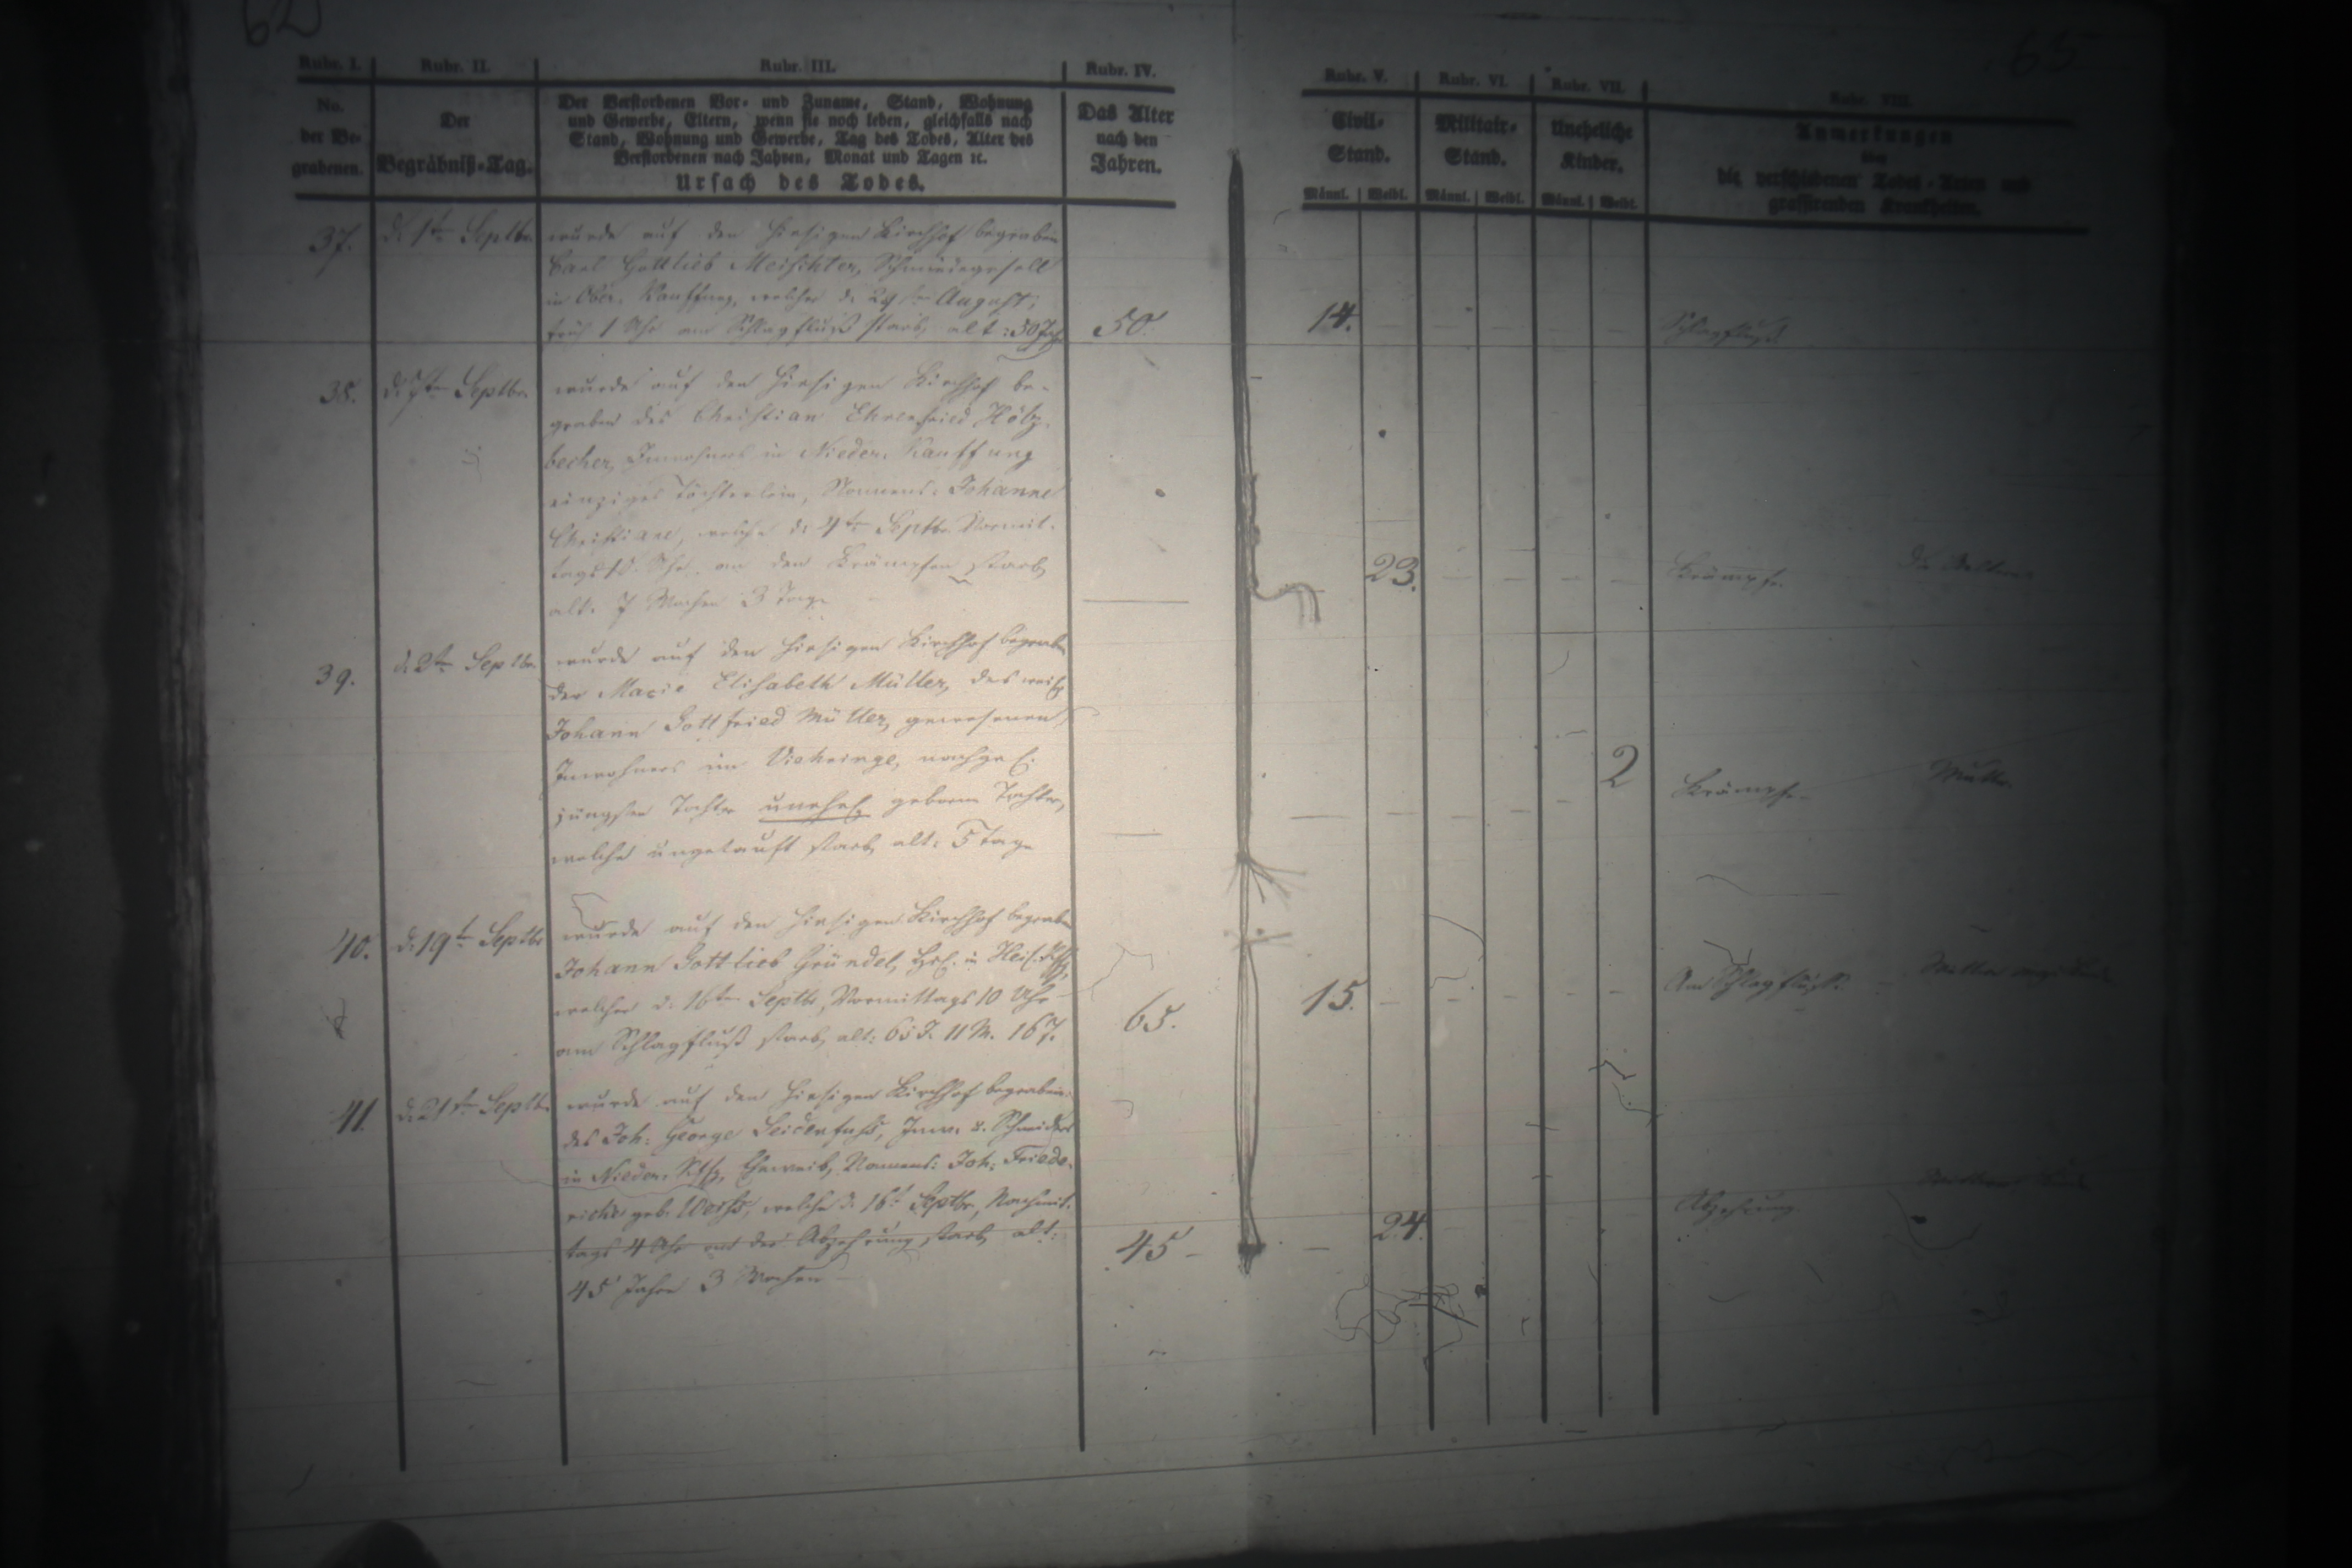 62
65
Rubr. I.
Rubr. II.
Rubr. III.
Rubr. IV.
Rubr. V.
Rubr. VI.
Rubr. VII.
Rubr. VIII.
No.
der Be-
grabenen.
Der
Begräbniß-Tag.
Der Verstorbenen Vor- und Zuname, Stand, Wohnung
und Gewerbe, Eltern, wenn sie noch leben, gleichfalls nach
Stand, Wohnung und Gewerbe, Tag des Todes, Alter des
Verstorbenen nach Jahren, Monat und Tagen ꝛc.
Ursach des Todes.
Das Alter
nach den
Jahren.
Civil-
Stand.
Militair-
Stand.
Uneheliche
Kinder.
Männl. Weibl. Männl. Weibl. Männl. Weibl.
Anmerkungen
über
die verschiedenen Todes-Arten und
grassirenden Krankheiten.
37. d. 1ten Septbr. wurde auf den hiesigen Kirchhof begraben
Carl Gottlieb
in Ober. Kauffung, welcher d. 29ten August,
früh 1 Uhr am Schlagfluß starb, alt: 50 Jah. 50. 14. Schlagfluß.
38. d. 7ten Septbr. wurde auf den hiesigen Kirchhof be-
graben des Christian Ehrenfried Hölz-
becher, Inwohners in Nieder. Kauffung
einziges Töchterlein, Namens: Johanne
Christiane, welche d. 4ten Septbr. Vormit-
tags 10. Uhr an den Krämpfen starb, 23. Krämpfe.
alt. 7 Wochen 3 Tage
39. Septbr. wurde auf den hiesigen Kirchhof begraben
der Marie Elisabeth Müller, des weil.
Johann Gottfried Müller, gewesenen
Inwohners im Viehringe, nachgel.
jüngsten Tochter unehel. geborne Tochter, 2 Krämpfe. Mutter
welche ungetauft starb, alt: 5 Tage
40. d. 19t Septbr wurde auf den hiesigen Kirchhof begraben
Johann Gottlieb Gründel, in
welcher d. 16ten Septbr, Vormittags 10 Uhr 15. Am Schlagfluß.
am Schlagfluß starb, alt: 65 J. 11 M. 16 T. 65.
41. d. 21ten Septb. wurde auf den hiesigen Kirchhof begraben:
des Joh: George Seidenfuhs, Inw. u. Schneiders
in Nieder. Kffg, Eheweib, Namens: Joh: Friede-
ricke geb. Weihs, welche d. 16t Septbr, Nachmit-
tags 4 Uhr an der Abzehrung starb, alt: 45 24. Abzehrung.
45 Jahre 3 Wochen